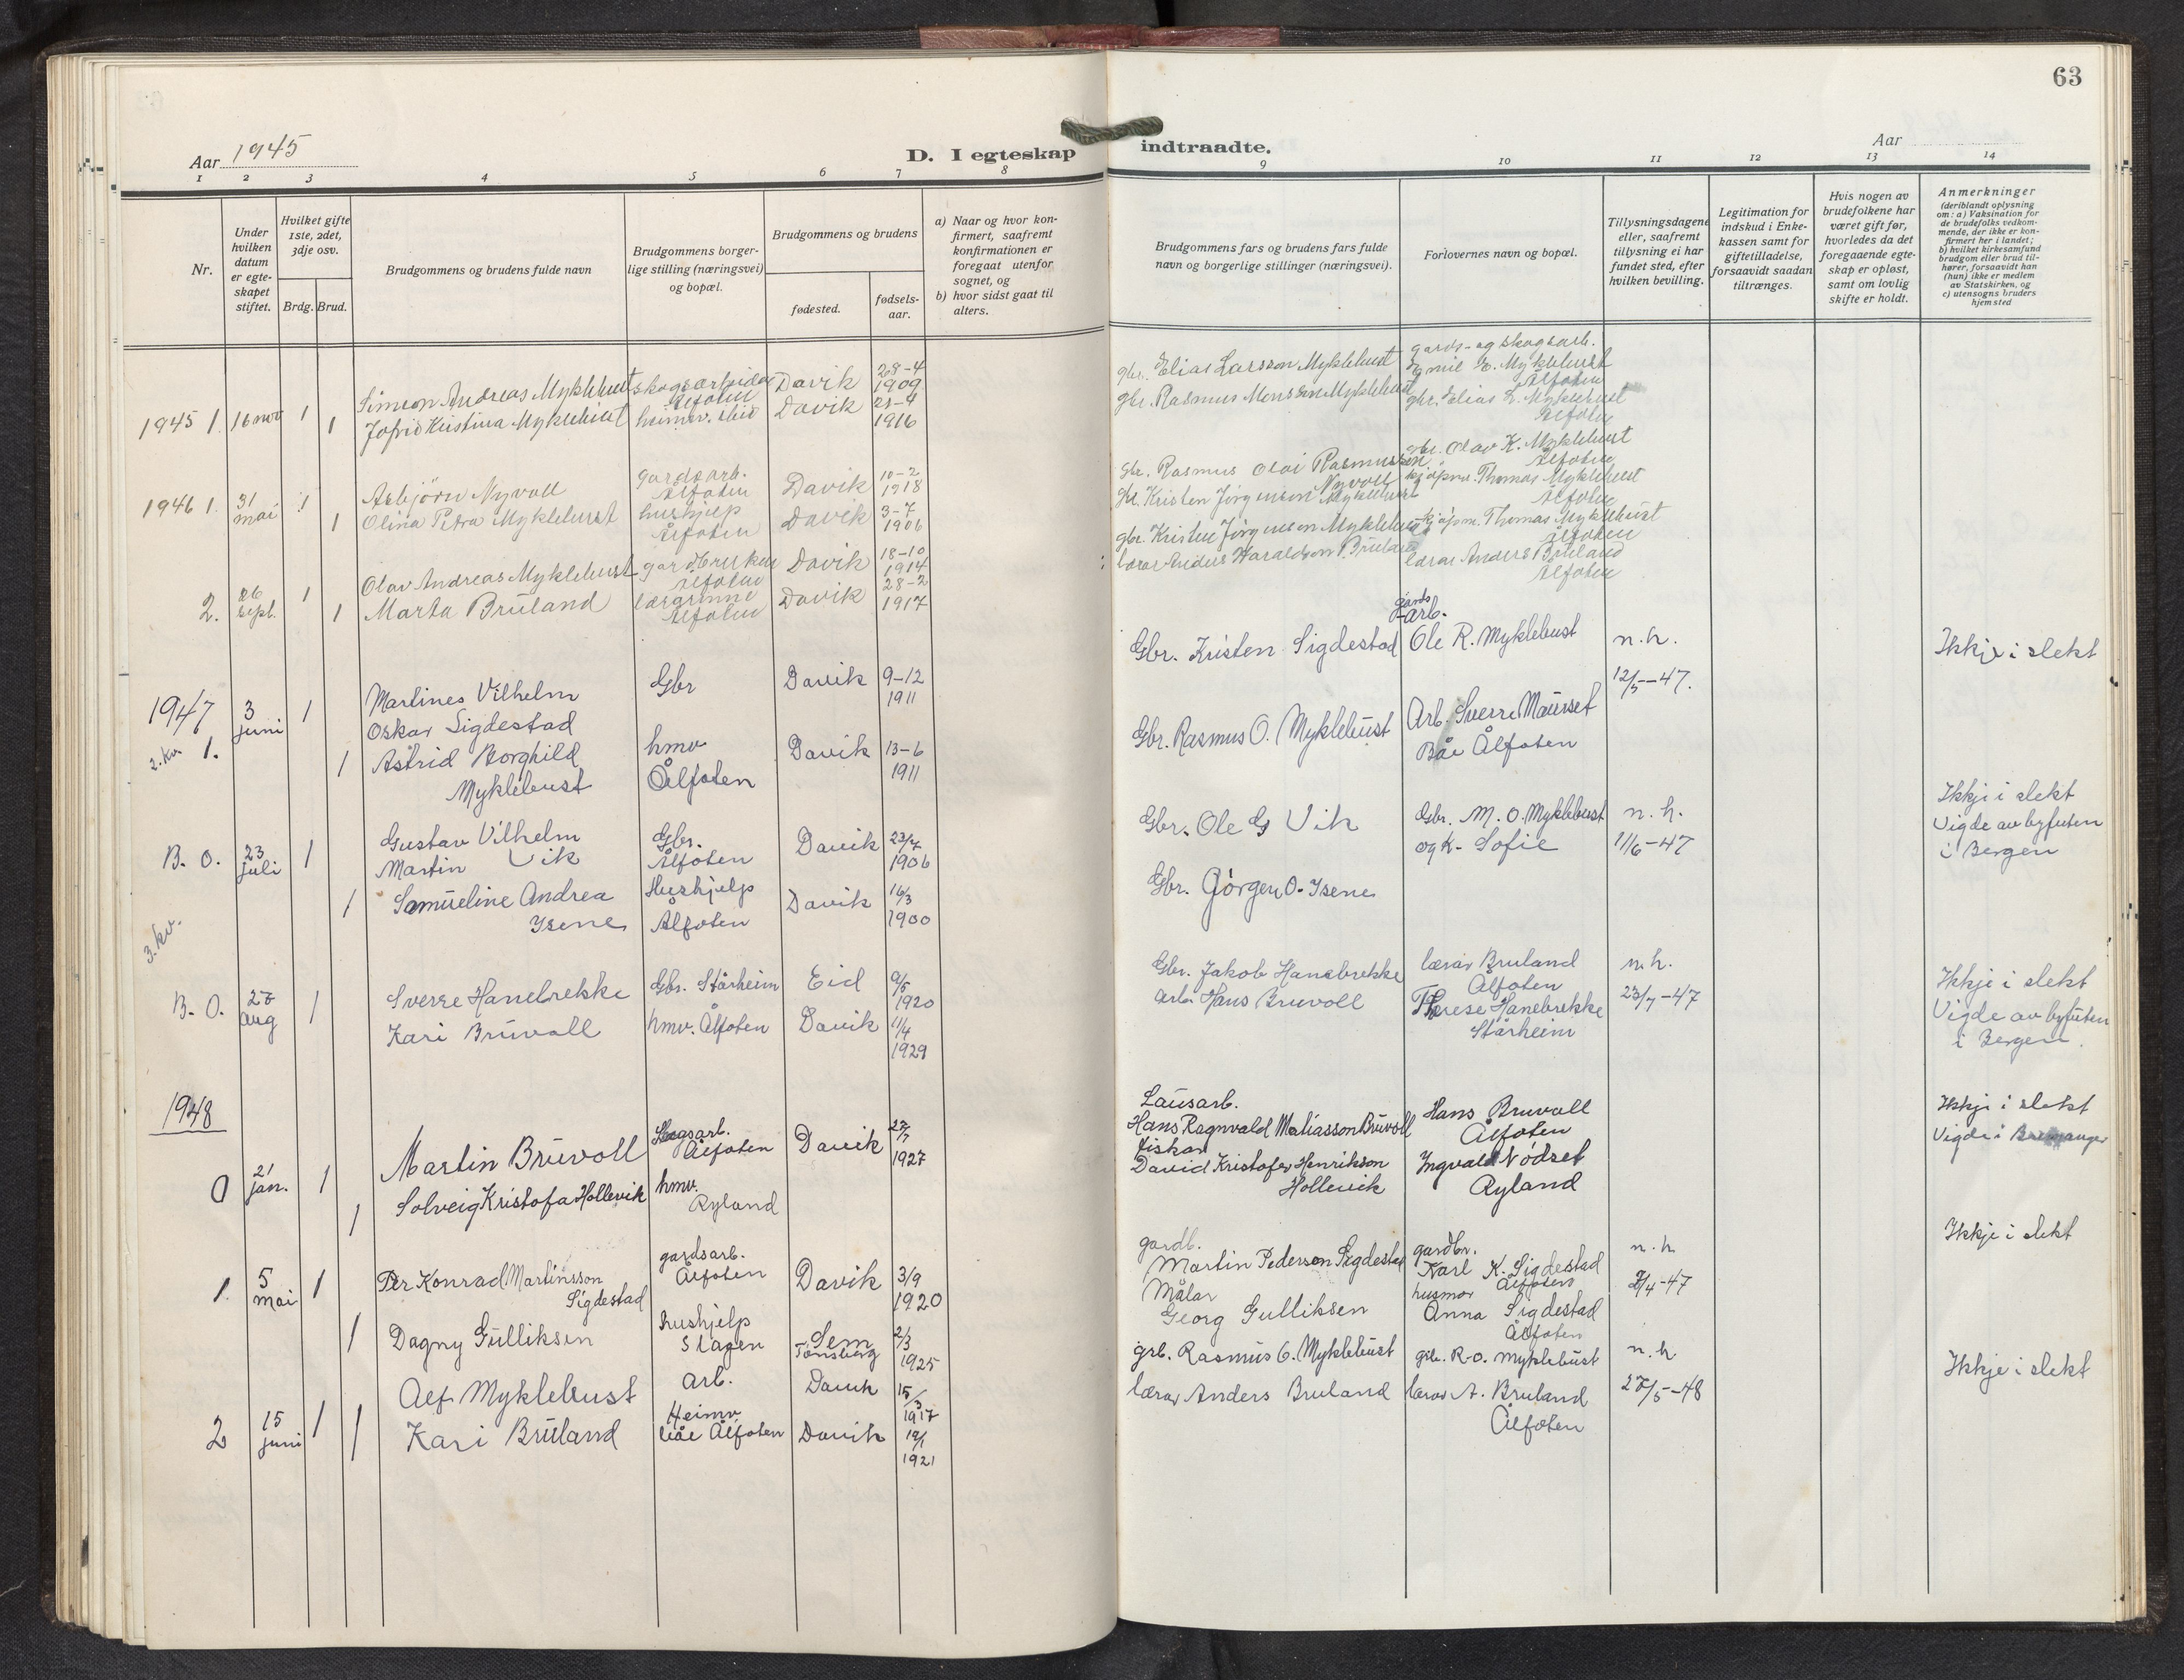 63
Aar 1945
D. I egteskap
indtraadte.
Aar
1 2 3 4 5 6 7 8
9 10 11 12 13 14
Nr.
Under
hvilken
datum
er egte-
skapet
stiftet.
Hvilket gifte
1ste, 2det,
3dje osv.
Brdg. Brud.
Brudgommens og brudens fulde navn
Brudgommens borger-
lige stilling (næringsvei)
og bopæl.
Brudgommens og brudens
fødested.
fødsels-
aar.
a) Naar og hvor kon-
firmert, saafremt
konfirmationen er
foregaat utenfor
sognet, og
b) hvor sidst gaat til
alters.
Brudgommens fars og brudens fars fulde
navn og borgerlige stillinger (næringsvei).
Forlovernes navn og bopæl.
Tillysningsdagene
eller, saafremt
tillysning ei har
fundet sted, efter
hvilken bevilling.
Legitimation for
indskud i Enke-
kassen samt for
giftetilladelse,
forsaavidt saadan
tiltrænges.
Hvis nogen av
brudefolkene har
været gift før,
hvorledes da det
foregaaende egte-
skap er opløst,
samt om lovlig
skifte er holdt.
Anmerkninger
(deriblandt oplysning
om: a) Vaksination for
de brudefolks vedkom-
mende, der ikke er kon-
firmert her i landet;
b) hvilket kirkesamfund
brudgom eller brud til-
hører, forsaavidt han
(hun) ikke er medlem
av Statskirken, og
c) utensogns bruders
hjemsted
1945 1. 16 nov 1
Simeon Andreas Myklebust skogsarbeidar Davik 28-4
Ålfoten 1909
1 Jofrid Kristina Myklebust heimv. Davik 28-4
1916
gbr. Elias Larsson Myklebust
gards- og skogsarb.
Emil E. Myklebust
Ålfoten
gbr. Rasmus Monsson Myklebust
gbr. Elias L. Myklebust
Ålfoten
1946 1. 31 mai 1
Asbjörn Nyvoll gardsarb. Davik 10-2
Ålfoten 1918
1 Olina Petra Myklebust hushjelp Davik 3-7
Ålfoten 1906
gbr. Rasmus Olai Rasmussen
Nyvoll
gbr. Olav K. Myklebust
Ålfoten
gbr. Kristen Jörgenson Myklebust
kjöpm. Thomas Myklebust
Ålfoten
2. 26 sept. 1
Olav Andreas Myklebust gardbrukar Davik 18-10
Ålfoten 1914
1 Marta Bruland lærarinne Davik 28-2
Ålfoten 1917
gbr. Kristen Jörgenson Myklebust
kjöpm. Thomas Myklebust
Ålfoten
lærar Anders Haraldson Bruland
lærar Anders Bruland
Ålfoten
1947 3 juni 1
2. kv. 1.
Martines Vilhelm Gbr Davik 9-12
Oskar Sigdestad 1911
1 Astrid Borghild hmv Davik 13-6
Myklebust Ålfoten 1911
Gbr. Kristen Sigdestad
gards
-arb.
Ole R. Myklebust n.h.
12/5-47.
Ikkje i slekt
Gbr. Rasmus O. Myklebust
Arb. Sverre Maurset
Båe Ålfoten
B. O. 23 juli 1
Gustav Vilhelm Gbr. Davik 23/7
Martin Vik Ålfoten 1906
1 Samueline Andrea Hushjelp Davik 16/3
Isene Ålfoten 1900
Gbr. Ole G Vik
Gbr. M. O. Myklebust n. h.
og k. Sofie 11/6-47
Gbr. Jörgen O. Isene
Ikkje i slekt
Vigde av byfuten
i Bergen
3. kv.
B. O. 27 aug 1
Sverre Hanebrekke Gbr. Stårheim Eid 9/5
1920
Kari Bruvoll hmv. Ålfoten Davik 11/4
1929
Gbr. Jakob Hanebrekke
lærar Bruland n.h.
Ålfoten
arb. Hans Bruvoll
Therese Hanebrekke 23/7-47
Stårheim
Ikkje i slekt
Vigde av byfuten
i Bergen.
1948
0 21 jan. 1
Martin Bruvoll Skogsarb. Davik 27/7
Ålfoten 1927
1 Solveig Kristofa Hollevik hmv.
Ryland
Lausarb.
Hans Ragnvald Matiasson Bruvoll
Hans Bruvoll
Ålfoten
Fiskar
David Kristofer Henrikson
Hollevik
Ingvald Nödset
Ryland
Ikkje i slekt
Vigde i Bremanger
1. 5 mai 1
Per Konrad Martinsson gardsarb. Davik 3/9
Sigdestad Ålfoten 1920
1 Dagny Gulliksen hushjelp Sem 2/3
Slagen Tønsberg 1925
gardb.
Martin Pederson Sigdestad
gardbr.
Karl K. Sigdestad n.h
Ålfoten
Målar
Georg Gulliksen
husmor
Anna Sigdestad
Ålfoten
Ikkje i slekt
2 15 juni 1
Alf Myklebust arb. Davik 15/3
1917
1 Kari Bruland Heimv. Davik 19/1
båe Ålfoten 1921
grb. Rasmus O. Myklebust
grb. R. O. Myklebust n.h
lærar Anders Bruland
lærar A. Bruland 27/5-48
Ålfoten
Ikkje i slekt